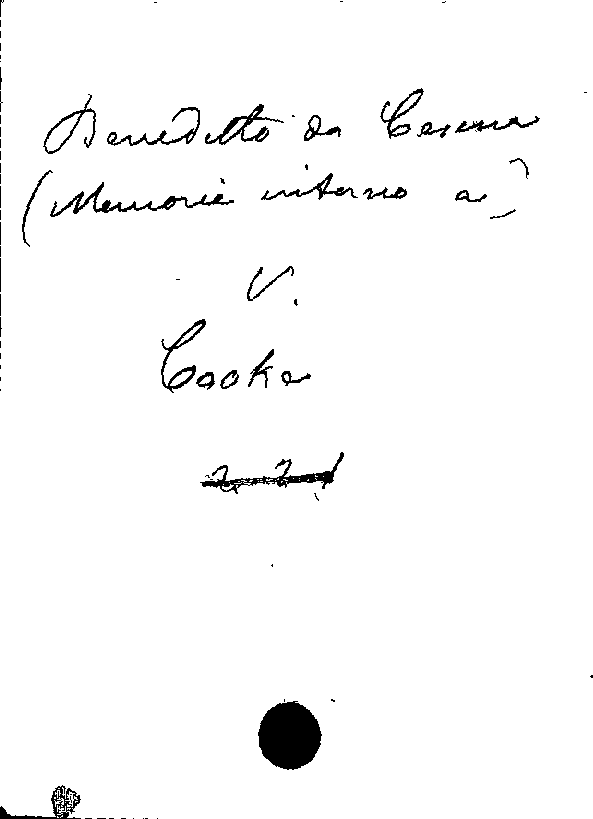 Benedetto da Cesena
(Memorie intorno a)
V.
Cooke